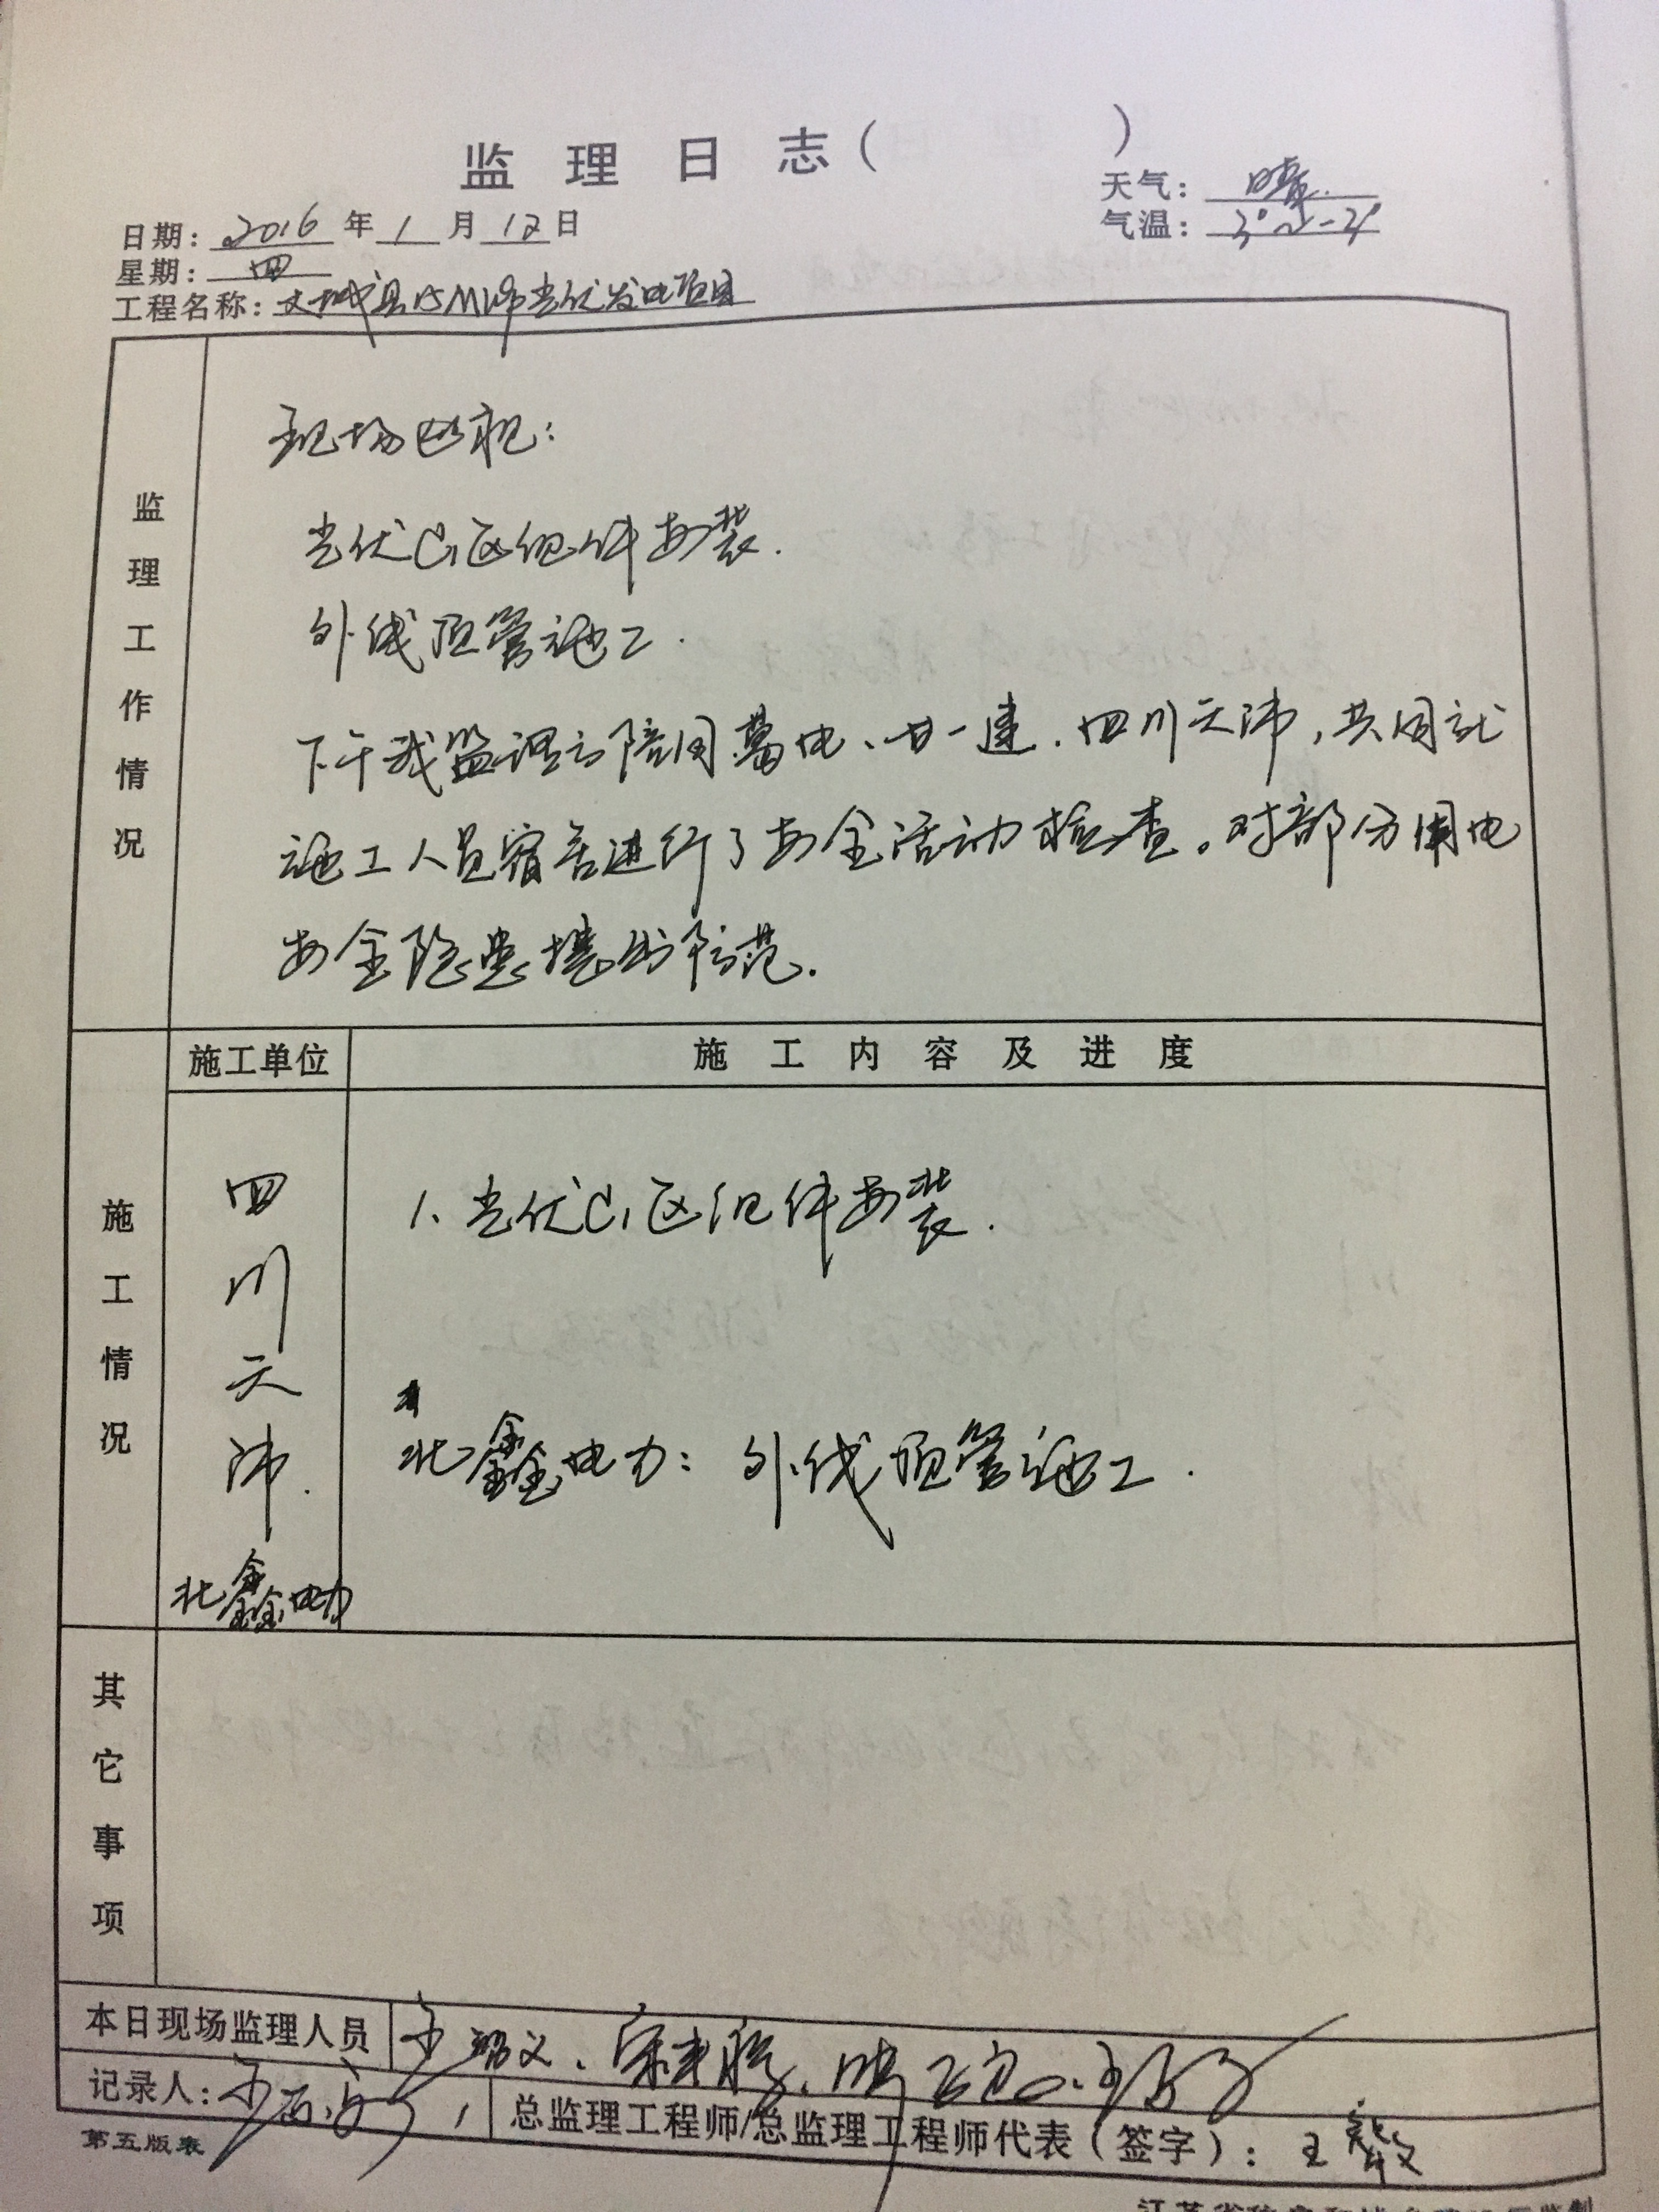 监理日志（ ）
天气：晴
日期：2016年1月12日
气温：3°~-2°
星期：四
工程名称：文城县15MW光伏发电项目
监理工作情况
现场巡视：
光伏C1区组件安装.
外线顶管施工.
下午我监理方陪同葛电、廿一建.四川天沛，共同就
施工人员宿舍进行了安全活动检查。对部分用电
安全隐患提出防范.
施工单位
施工内容及进度
施工情况
四川天沛.
1、光伏C1区组件安装.
北鑫电力：外线顶管施工.
北鑫电力
其它事项
本日现场监理人员
记录人：
总监理工程师/总监理工程师代表（签字）：王
第五版表